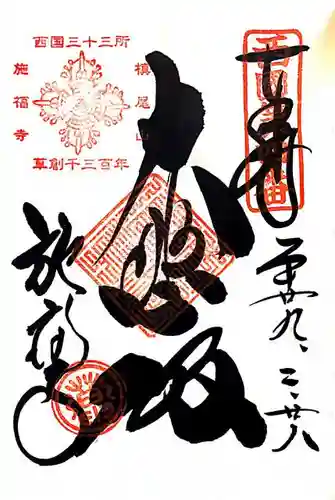 西国三十三所
槇尾山
施福寺
草創千三百年
奉拝
平廿九、二、廿八
大悲殿
施福寺